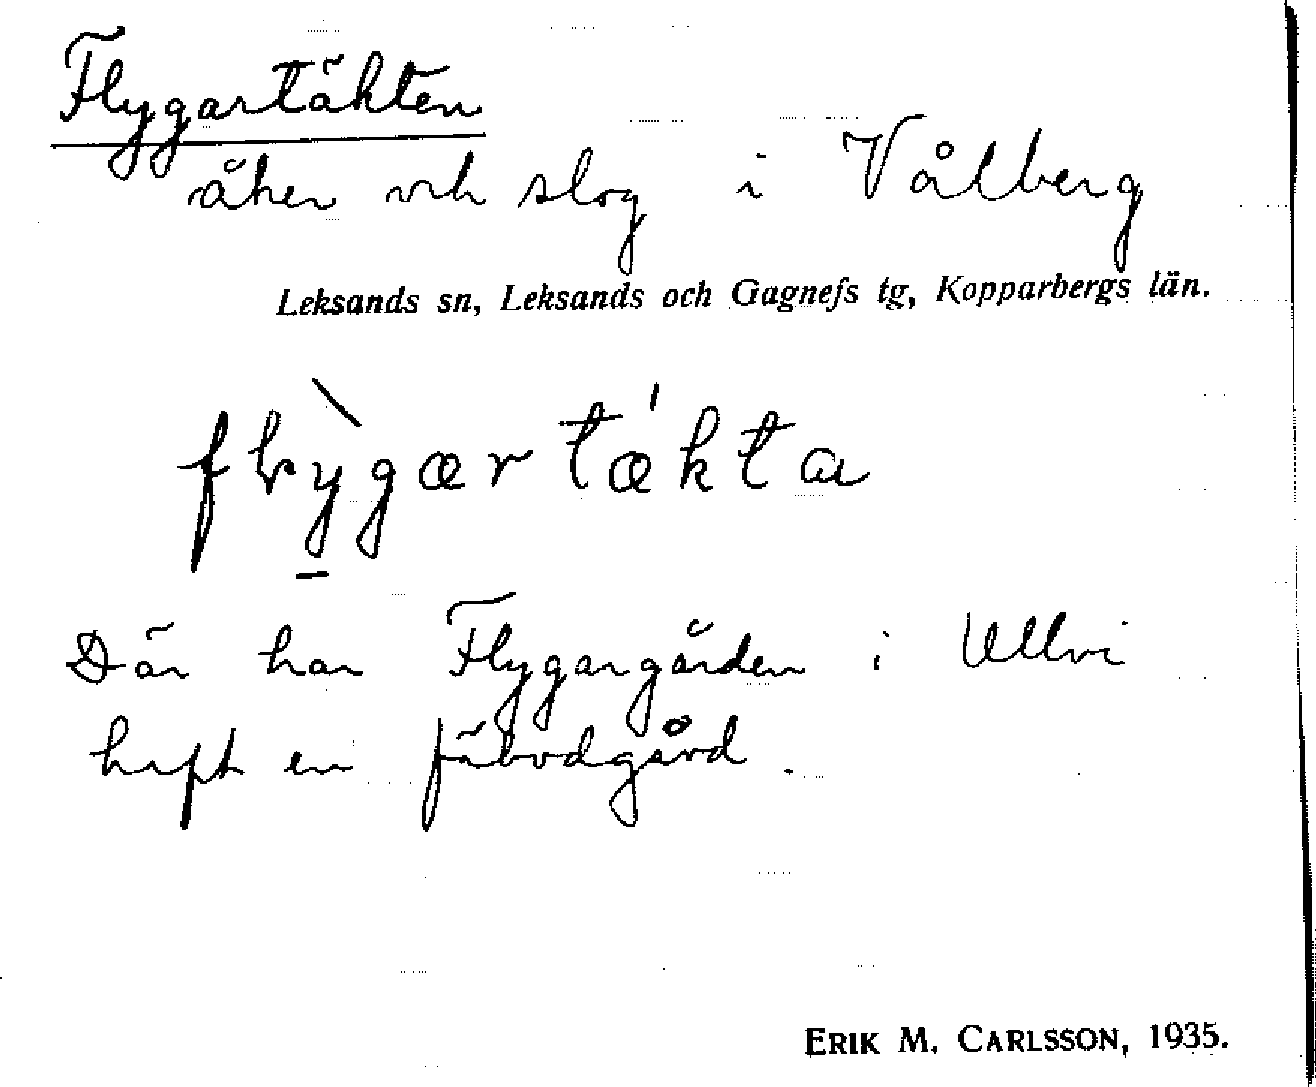 Flygartäkten
åker och slog i Vålberg
Leksands sn, Leksands och Gagnefs tg, Kopparbergs län.
flỳgærtǽkta
Där har Flygargården i Ullvi
haft en fäbodgård.
ERIK M. CARLSSON, 1935.